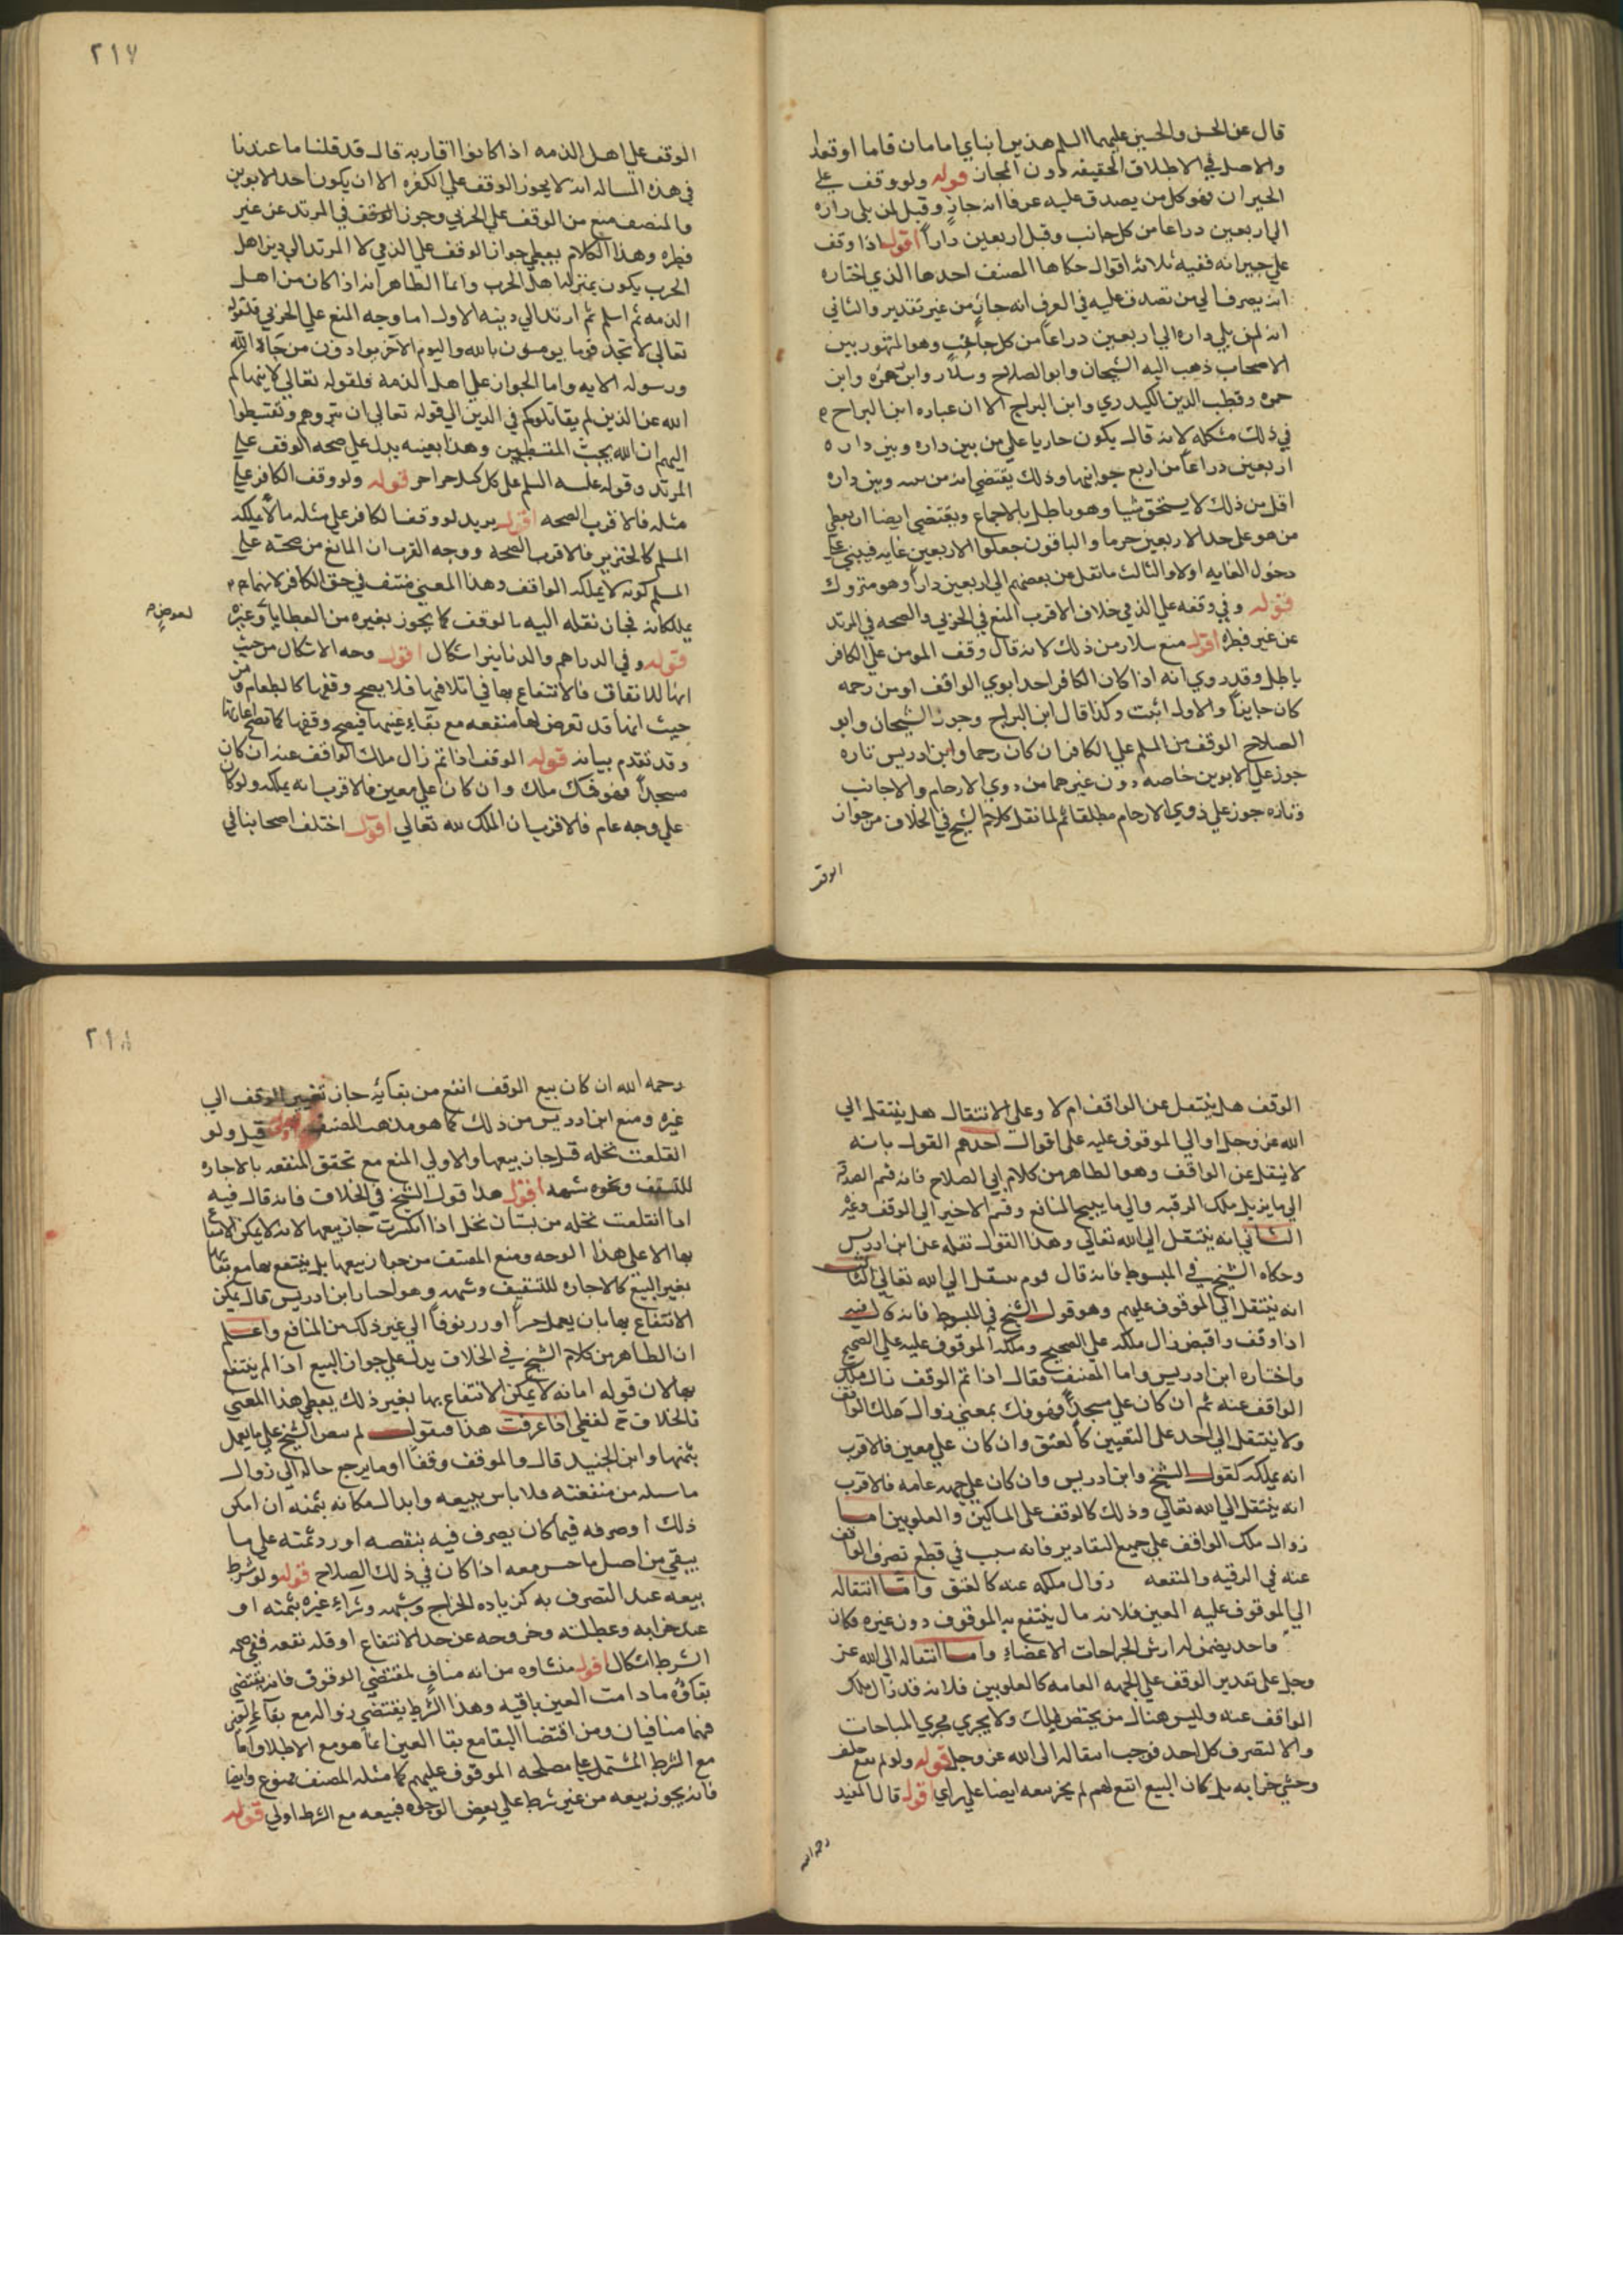 قال عن الحسن والحسين عليهما السلم هذين ابناي امامان قاما او قعدا
والاصل في الاطلاق الحقيقه دون المجاز قوله ولو وقف علي
الجيران فهو كل من يصدق عليه عرفا انه جار وقيل لمن يلي داره
الي اربعين دراعا من كل جانب وقيل اربعين داراً اقول اذا وقف
علي جيرانه ففيه ثلاثه اقوال حكاها المصنف احدها الذي اختاره
انه يصرف الي من تصدق عليه في العرف انه جار من غير تقدير والثاني
انه لمن يلي داره الي اربعين دراعاً من كل جانب وهو المشهور بين
الاصحاب ذهب اليه الشيخان وابو الصلاح وسلار وابن حمزه وابن
حمزه وقطب الدين الكيدري وابن البراج الا ان عباره ابن البراج
في ذلك مشكله لانه قال يكون جاريا علي من بين داره وبين داره
اربعين دراعاً من اربع جوانبها وذلك يقتضي ان من بينه وبين داره
اقل من ذلك لا يستحق شيا وهو باطل بالاجماع ويقتضي ايضا ان يعطي
من هو علي حد الاربعين جرما والباقون جعلوا الاربعين غايه فيبني علي
دخول الغايه اولا والثالث ما نقل عن بعضهم الي اربعين داراً وهو متروك
قوله وفي وقفه علي الذمي خلاف الاقرب المنع في الحربي والصحه في المرتد
عن غير فطره اقول منع سلار من ذلك لانه قال وقف المومن علي الكافر
باطل وقد روي انه اذا كان الكافر احد ابوي الواقف او من رحمه
كان جايزاً والاول اثبت وكذا قال ابن البراج وجوز الشيخان وابو
الصلاح الوقف من المسلم علي الكافر ان كان رحما وابن ادريس تاره
جوز علي الابوين خاصه دون غيرهما من ذوي الارحام والاجانب
وتاره جوز علي ذوي الارحام مطلقا ثم لما نقل كلام الشيخ في الخلاف من جواز
الوقف
٢١٧
الوقف علي اهل الذمه اذا كانوا اقاربه قال قد قلنا ما عندنا
في هذه المساله انه لا يجوز الوقف علي الكفره الا ان يكون احد الابوين
والمنصف منع من الوقف علي الحربي وجوز الوقف في المرتد عن غير
فطره وهذا الكلام يعطي جواز الوقف علي الذمي لا المرتد الي دين اهل
الحرب يكون بمنزله اهل الحرب وانما الظاهر انه اذا كان من اهل
الذمه ثم اسلم ثم ارتد الي دينه الاول اما وجه المنع علي الحربي فلقوله
تعالي لا تجد قوما يومنون بالله واليوم الاخر يوادون من حاد الله
ورسوله الايه واما الجواز علي اهل الذمه فلقوله تعالي لا ينهاكم
الله عن الذين لم يقاتلوكم في الدين الي قوله تعالي ان تبروهم وتقسطوا
اليهم ان الله يحب المقسطين وهذا بعينه يدل علي صحه الوقف علي
المرتد وقوله عليه السلم علي كل كبد حرا حر قوله ولو وقف الكافر علي
مثله فالاقرب الصحه اقول يريد لو وقف الكافر علي مثله ما لا يملكه
المسلم كالخنزير فالاقرب الصحة ووجه القرب ان المانع من صحته علي
المسلم كونه لا يملكه الواقف وهذا المعني منتف في حق الكافر لانهما
يملكانه فجاز نقله اليه بالوقف كما يجوز بغيره من العطايا وغيره
لعوض
قوله وفي الدراهم والدنانير اشكال اقول وجه الاشكال من حيث
انها للانفاق فالانتفاع بها في اتلافها فلا يصح وقفها كالطعام ومن
حيث انها قد تعرض لها منفعه مع بقاء عينها فيصح وقفها كما تصح اعارتها
وقد تقدم بيانه قوله الوقف اذا تم زال ملك الواقف عنه ان كان
مسجداً فهو فك ملك وان كان علي معين فالاقرب انه يملكه ولو كان
علي وجه عام فالاقرب ان الملك لله تعالي اقول اختلف اصحابنا في
الوقف هل ينتقل عن الواقف ام لا وعلي الانتقال هل ينتقل الي
الله عز وجل او الي الموقوف عليه علي اقوال احدهم القول بانه
لا ينتقل عن الواقف وهو الظاهر من كلام ابي الصلاح فانه قسم الصدقه
الي ما يزيل ملك الرقبه والي ما يبيح المنافع وقسم الاخير الي الوقف وغيره
الثاني انه ينتقل الي الله تعالي وهذا القول نقله عن ابن ادريس
وحكاه الشيخ في المبسوط فانه قال قوم ينتقل الي الله تعالي الثالث
انه ينتقل الي الموقوف عليهم وهو قول الشيخ في المبسوط فانه قال فيه
اذا وقف واقبض زال ملكه علي الصحيح وملكه الموقوف عليه علي الصحيح
واختاره ابن ادريس واما المصنف فقال اذا تم الوقف زال ملك
الواقف عنه ثم ان كان علي مسجد فهو فك بمعني زوال ملك الواقف
ولا ينتقل الي احد علي التعيين كالعتق وان كان علي معين فالاقرب
انه يملكه كقول الشيخ وابن ادريس وان كان علي جهه عامه فالاقرب
انه ينتقل الي الله تعالي وذلك كالوقف علي المساكين والعلويين اما
زوال ملك الواقف علي جميع التقادير فانه سبب في قطع تصرف الواقف
عنه في الرقبه والمنفعه زوال ملكه عنه كالعتق واما انتقاله
الي الموقوف عليه المعين فلانه مال ينتفع به الموقوف دون غيره فكان
واحد يضمن له ارش الجراحات الاعضاء واما انتقاله الي الله عز
وجل علي تقدير الوقف علي الجهه العامه كالعلويين فلانه قد زال ملك
الواقف عنه وليس هناك من يختص بالملك ولا يجري مجري المباحات
والا لتصرف كل احد فوجب انتقاله الي الله عز وجل قوله ولو لم يقع خلف
وخشي خرابه بل كان البيع انفع لهم لم يجز بيعه ايضا علي راي اقول قال المفيد
رحمه الله
٢١٨
رحمه الله ان كان بيع الوقف انفع من بقائه جاز تغيير الوقف الي
غيره ومنع ابن ادريس من ذلك كما هو مذهب المصنف قوله قيل ولو
انقلعت نخله قيل جاز بيعها والاولي المنع مع تحقق المنفعه بالاجاره
للتسقيف ونحوه شبهه اقول هذا قول الشيخ في الخلاف فانه قال فيه
اذا انقلعت نخله من بستان نخل اذا انكسرت جاز بيعها لانه لا يمكن الانتفاع
بها الا علي هذا الوجه ومنع المصنف من جواز بيعها بل ينتفع بها مع بقائها
بغير البيع كالاجاره للتسقيف وشبهه وهو اختيار ابن ادريس قال يمكن
الانتفاع بها بان يعمل جسراً او زرنوقاً الي غير ذلك من المنافع واعلم
ان الظاهر من كلام الشيخ في الخلاف يدل علي جواز البيع اذا لم ينتفع
بها لان قوله امانه لا يمكن الانتفاع بها بغير ذلك يعطي هذا المعني
فالخلاف ح لفظي اذا عرفت هذا فنقول لم يبين الشيخ علي ما يعمل
بثمنها وابن الجنيد قال والموقف وقفاً او ما يرجع حاله الي زوال
ما سبله من منفعته فلا باس ببيعه وابدال مكانه بثمنه ان امكن
ذلك او صرفه فيما كان يصرف فيه بنقصه او رد ثمنه علي ما
يبقي من اصل ما حبس معه اذا كان في ذلك الصلاح قوله ولو شرط
بيعه عند التصرف به كزياده الخراج وشبهه وشراء غيره بثمنه او
عند خرابه وعطلته وخروجه عن حد الانتفاع او قله نفعه ففي صحه
الشرط اشكال اقول منشاوه من انه مناف لمقتضي الوقوف فانه يقتضي
بقاؤه ما دامت العين باقيه وهذا الشرط يقتضي زواله مع بقاء العين
فهما متنافيان ومن اقتضا البقا مع بقا العين انما هو مع الاطلاق اما
مع الشرط المشتمل علي مصلحه الموقوف عليهم كما مثله المصنف ممنوع وايضا
فانه يجوز بيعه من غير شرط علي بعض الوجوه فبيعه مع الشرط اولي قوله